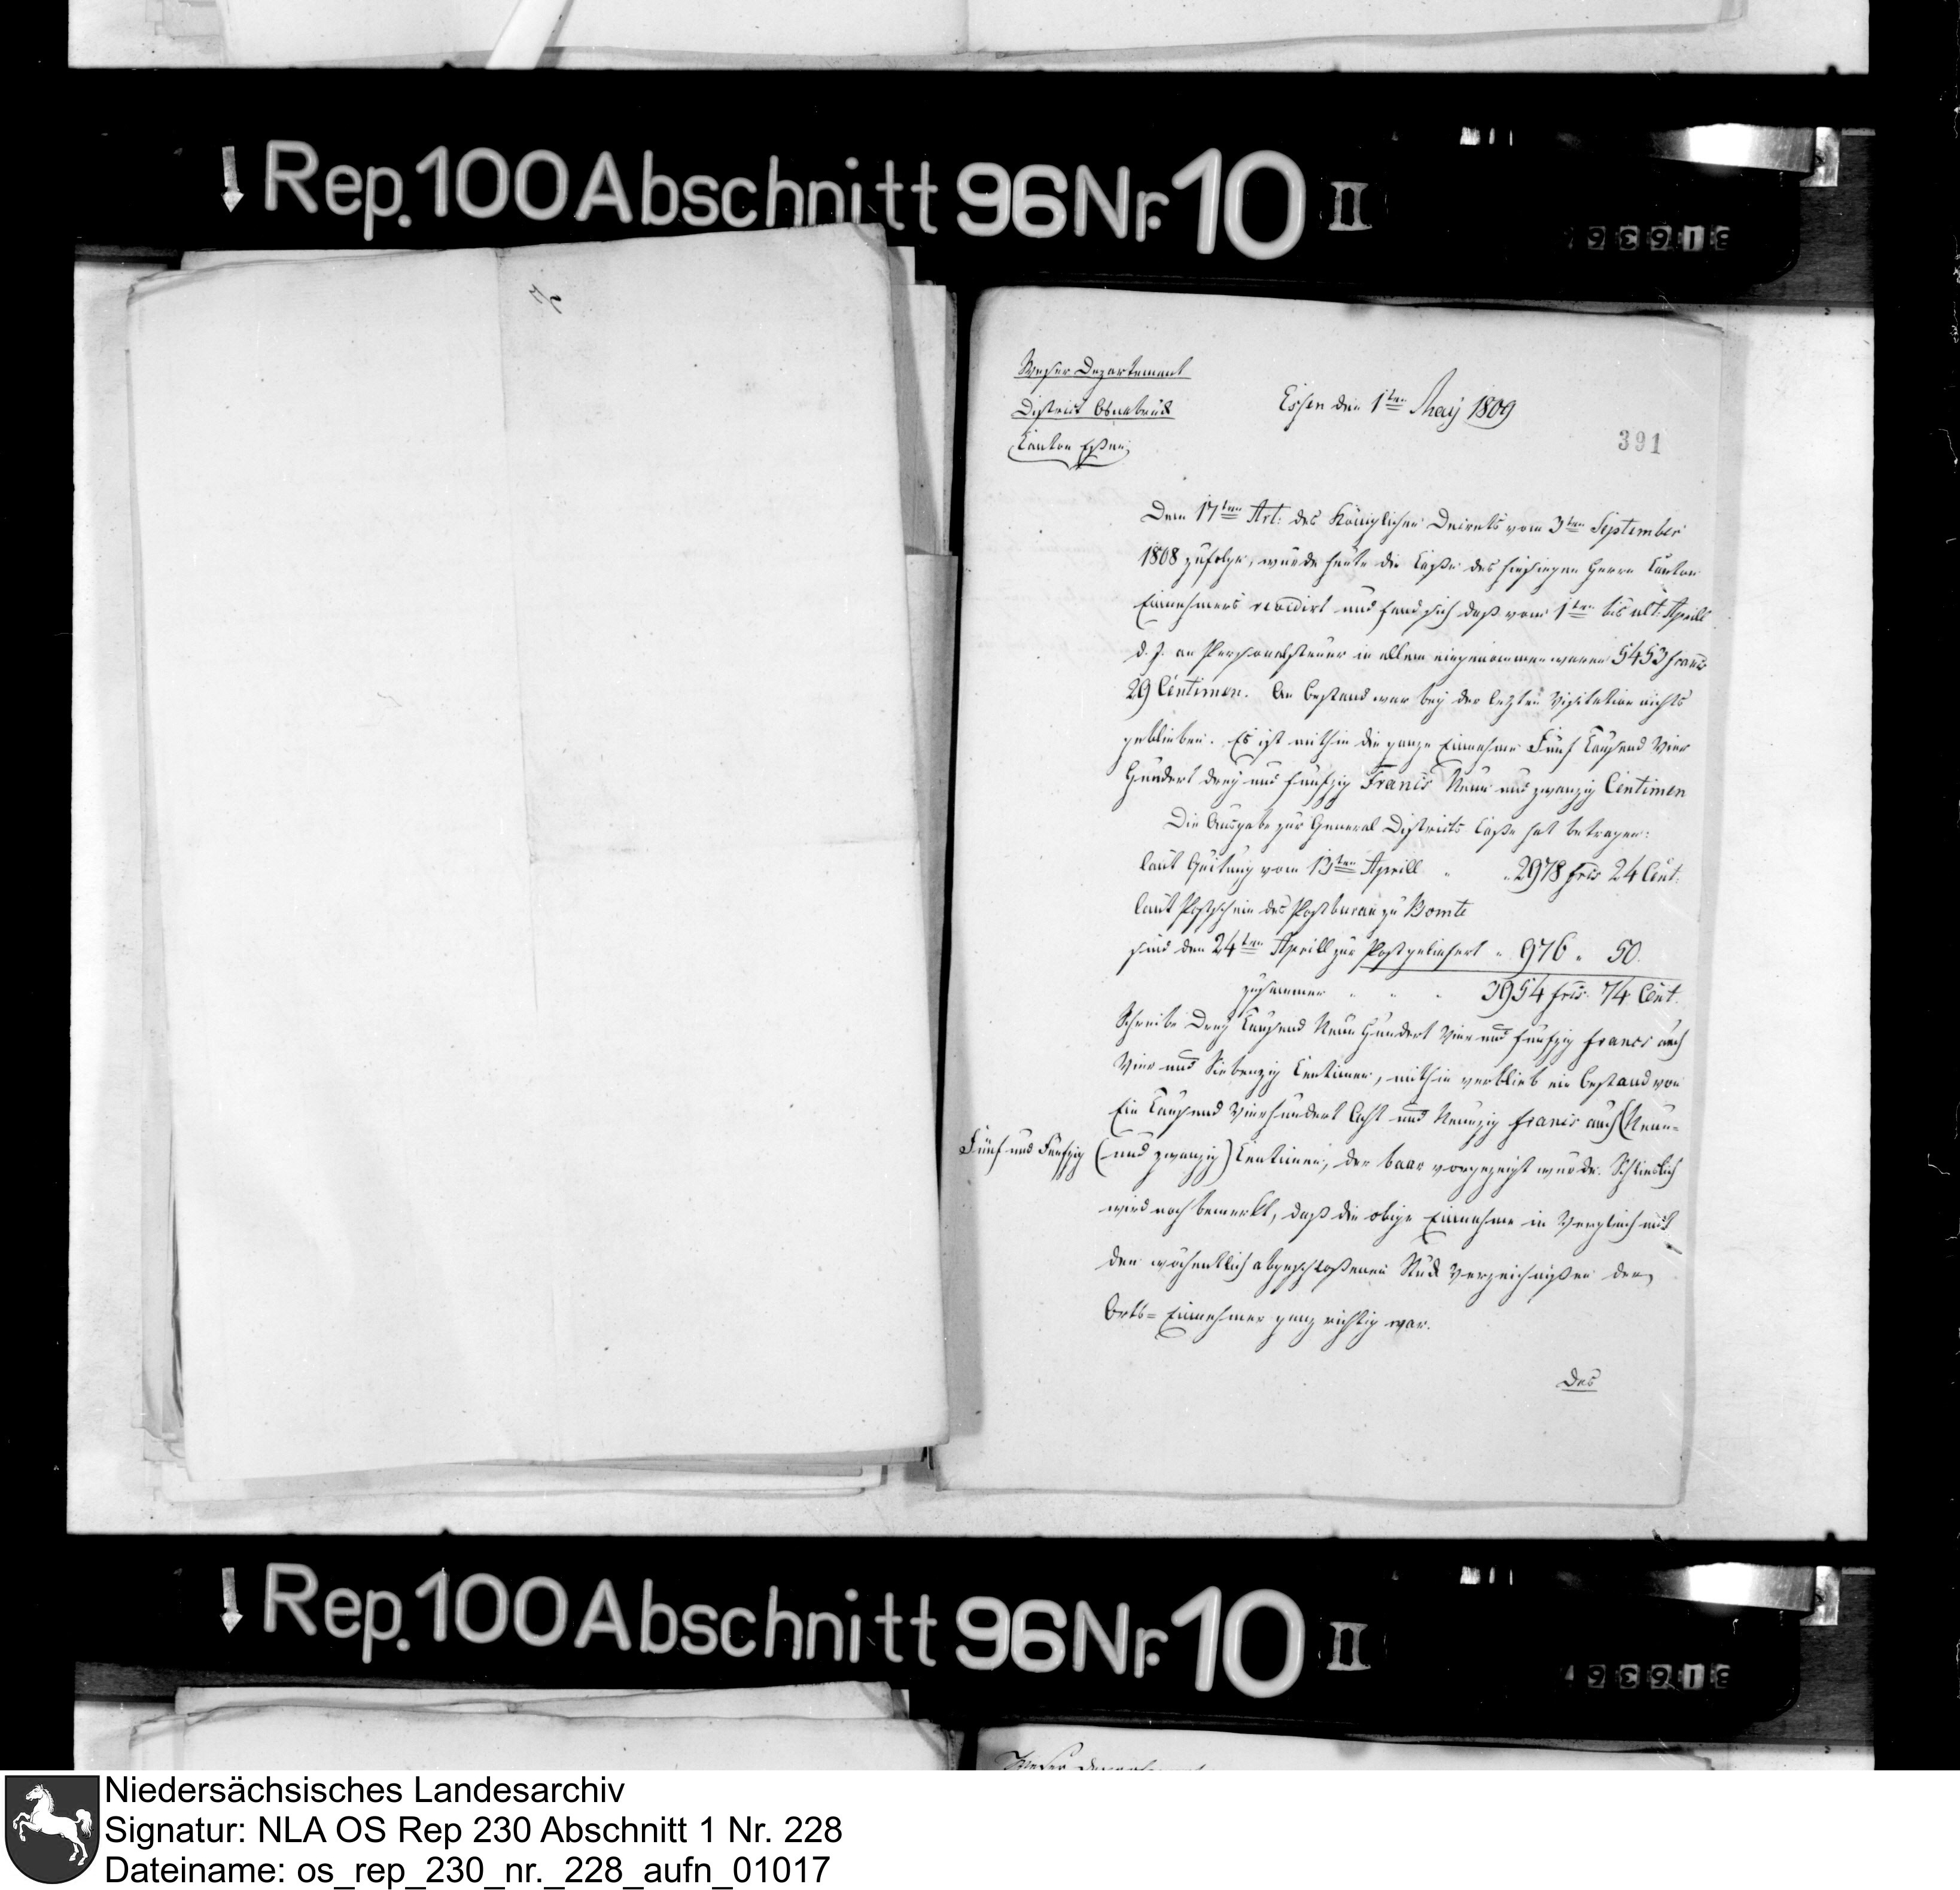 Rep. 100 Abschnitt 96 Nr. 10 II
316367
Weser Departement
District Osnabrück
Canton Eßen
Essen den 1ten May 1809
391
Dem 17ten Art: des Königlichen Decrets vom 3ten September
1808 zufolge, wurde heute die Caße des hiesigen Herrn Canton
Einnehmers revidirt und fand sich daß vom 1ten bis ult: Aprill
d. J. an Personalsteuer in allem eingenommen waren 5453 francs
29 Centimen. An Bestand war bey der lezten Visitation nichts
geblieben. Es ist mithin die ganze Einnahme Fünf Tausend Vier
Hundert drey und funfzig Francs Neun und zwanzig Centimen
Die Ausgabe zur General Districts Caße hat betragen:
laut Quitung vom 13ten Aprill " " 2978 frcs 24 Cent.
laut Postschein des Postbureau zu Bomte
sind den 24ten Aprill zur Post geliefert " 976 " 50.
zusammen " " " 3954 frcs. 74 Cent.
Schreibe Drey Tausend Neun Hundert Vier und funfzig francs auch
Vier und Siebenzig Centimen, mithin verblieb ein Bestand von
Ein Tausend Vierhundert Acht und Neunzig francs auch (Neun=
Fünf und Funfzig (und zwanzig) Centimen, der baar vorgezeigt wurde. Schlieslich
wird noch bemerkt, daß die obige Einnahme in Vergleich mit
den wöchentlich abgeschloßenen Stück Verzeichnißen der
Orts=Einnehmer ganz richtig war.
Des
Rep. 100 Abschnitt 96 Nr. 10 II
316367
Niedersächsisches Landesarchiv
Signatur: NLA OS Rep 230 Abschnitt 1 Nr. 228
Dateiname: os_rep_230_nr._228_aufn_01017